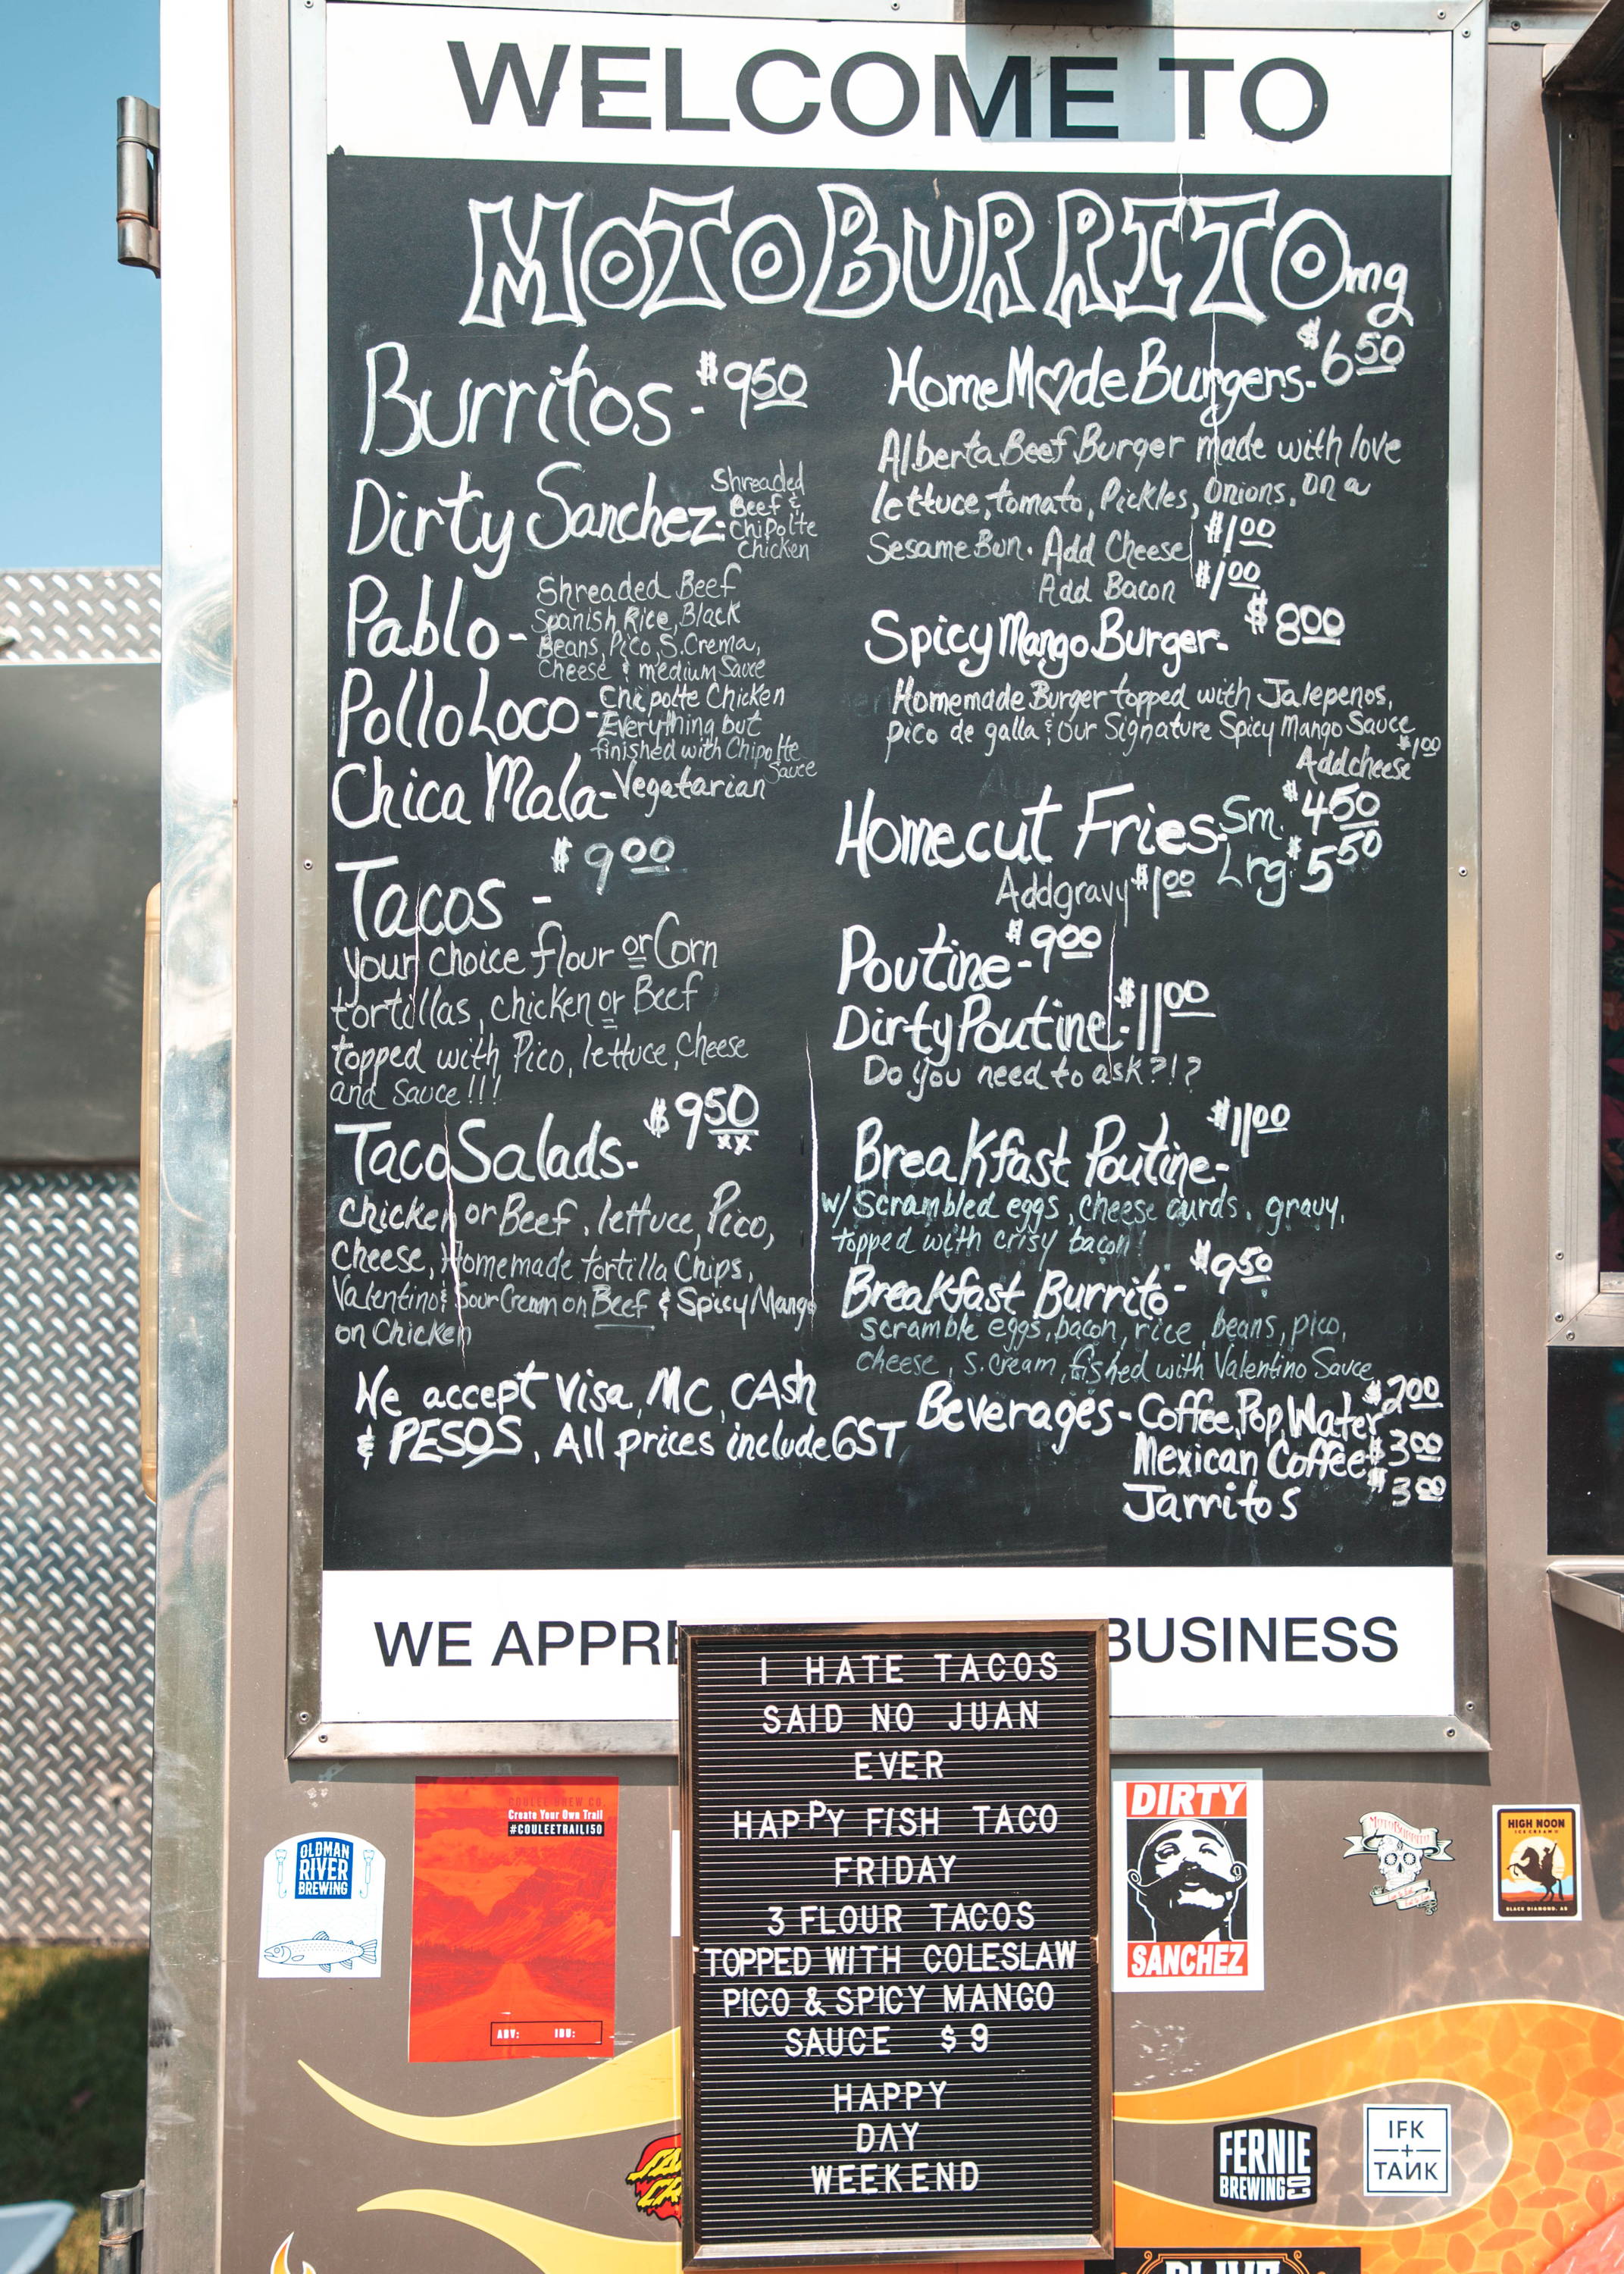 WELCOME TO
MOTOBURRITOmg
Burritos - $9.50
Dirty Sanchez - Shreaded
Beef &
Chipolte
Chicken
Pablo - Shreaded Beef
Spanish Rice, Black
Beans, Pico, S.Crema,
Cheese & medium Sauce
Pollo Loco - Chipolte Chicken
Everything but
finished with Chipolte
Sauce
Chica Mala - Vegatarian
Tacos - $9.00
your choice flour or Corn
tortillas, chicken or Beef
topped with Pico, lettuce, Cheese
and Sauce!!!
Taco Salads - $9.50
xx
Chicken or Beef, lettuce, Pico,
Cheese, Homemade tortilla Chips,
Valentino & Sour Cream on Beef & Spicy Mango
on Chicken
We accept Visa, MC, CASh
& PESOS, All prices include GST
Home M♡de Burgers - $6.50
Alberta Beef Burger made with love
lettuce, tomato, Pickles, Onions, on a
Sesame Bun. Add Cheese $1.00
Add Bacon $1.00
Spicy Mango Burger - $8.00
Homemade Burger topped with Jalepenos,
pico de galla & our Signature Spicy Mango Sauce
Add cheese $1.00
Homecut Fries - Sm. $4.50
Lrg $5.50
Add gravy $1.00
Poutine - $9.00
Dirty Poutine - $11.00
Do you need to ask?!?
Breakfast Poutine - $11.00
w/ Scrambled eggs, cheese curds, gravy,
topped with crisy bacon!
Breakfast Burrito - $9.50
Scramble eggs, bacon, rice, beans, pico,
cheese, s.cream, fished with Valentino Sauce
Beverages - Coffee, Pop, Water $2.00
Mexican Coffee $3.00
Jarritos $3.00
WE APPRE BUSINESS
I HATE TACOS
SAID NO JUAN
EVER
HAPPY FISH TACO
FRIDAY
3 FLOUR TACOS
TOPPED WITH COLESLAW
PICO & SPICY MANGO
SAUCE $9
HAPPY
DAY
WEEKEND
OLDMAN
RIVER
BREWING
COULEE BREW CO.
Create Your Own Trail
#COULEETRAIL150
ABV: IBU:
DIRTY
SANCHEZ
MotoBurrito
HIGH NOON
ICE CREAM
BLACK DIAMOND, AB
FERNIE
BREWING CO
IFK
+
TAИK